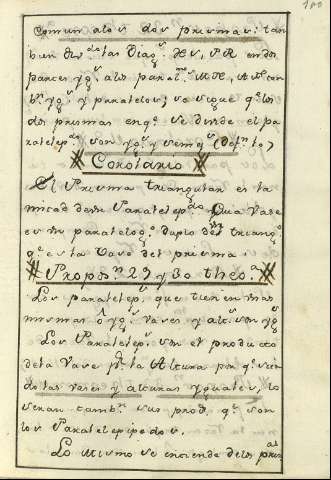 100
Comun alos dos prismas: tan
bien
partes yg.s alos paral.mos
y paralelos; se sigue q.e los
dos prismas en q.e se divide el pa
ralelep.do son yg.s y semeg.s (Def.n 10)
Corolario
El Prisma triangular es la
mitad de un Paralelep.do Cuia Vase
es un paralelog.o duplo del triang.o
q.e es la Vase del prisma.
Propos.n 29 y 30 theo.a
Los paralelep.s que tienen unas
mismas ô yg.s vases y alt.s son yg.s
Los Paralelep.s son el producto
de la Vase p.r la Altura por q.e sien
do las vases y alturas yguales, lo
seran tamb.n sus prod.s q.e son
los Paralelepipedos.
Lo mismo se entiende delos pris